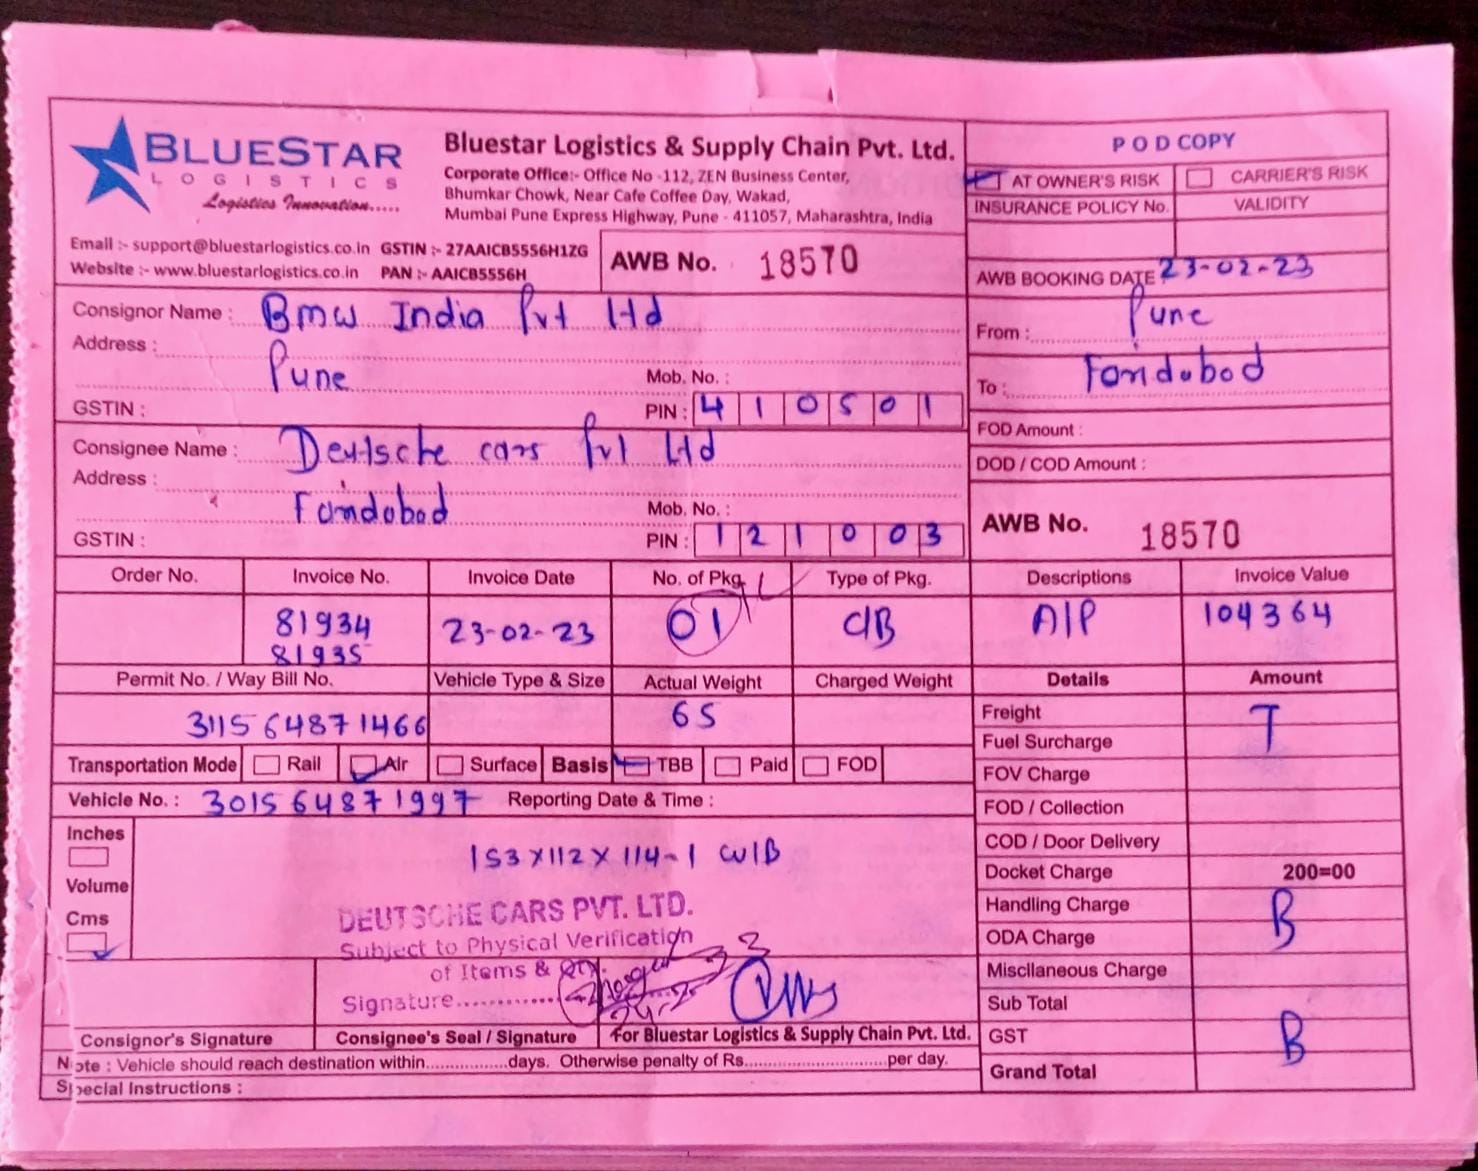 BLUESTAR
LOGISTICS
Logistics Innovation.....
Bluestar Logistics & Supply Chain Pvt. Ltd.
Corporate Office:- Office No -112, ZEN Business Center,
Bhumkar Chowk, Near Cafe Coffee Day, Wakad,
Mumbai Pune Express Highway, Pune - 411057, Maharashtra, India
Email :- support@bluestarlogistics.co.in GSTIN :- 27AAICB5556H1ZG
Website :- www.bluestarlogistics.co.in PAN :- AAICB5556H
AWB No. 18570
POD COPY
AT OWNER'S RISK CARRIER'S RISK
INSURANCE POLICY No. VALIDITY
AWB BOOKING DATE 23-02-23
From : Pune
To : Faridabad
FOD Amount :
DOD / COD Amount :
AWB No. 18570
Consignor Name : Bmw India Pvt Ltd
Address :
Pune Mob. No. :
GSTIN : PIN : 410501
Consignee Name : Deutsche cars Pvt Ltd
Address :
Faridabad Mob. No. :
GSTIN : PIN : 121003
Order No. Invoice No. Invoice Date No. of Pkg. Type of Pkg. Descriptions Invoice Value
81934 23-02-23 01 C/B A/P 104364
81935
Permit No. / Way Bill No. Vehicle Type & Size Actual Weight Charged Weight Details Amount
311564871466 65
Transportation Mode Rail Air Surface Basis TBB Paid FOD
Vehicle No. : 301564871997 Reporting Date & Time :
Inches
Volume
Cms
153x112x114-1 W/B
DEUTSCHE CARS PVT. LTD.
Subject to Physical Verification
of Items &
Signature..............
Freight T
Fuel Surcharge
FOV Charge
FOD / Collection
COD / Door Delivery
Docket Charge 200=00
Handling Charge B
ODA Charge
Miscllaneous Charge
Sub Total
GST B
Grand Total
Consignor's Signature Consignee's Seal / Signature For Bluestar Logistics & Supply Chain Pvt. Ltd.
Note : Vehicle should reach destination within................days. Otherwise penalty of Rs............................per day.
Special Instructions :